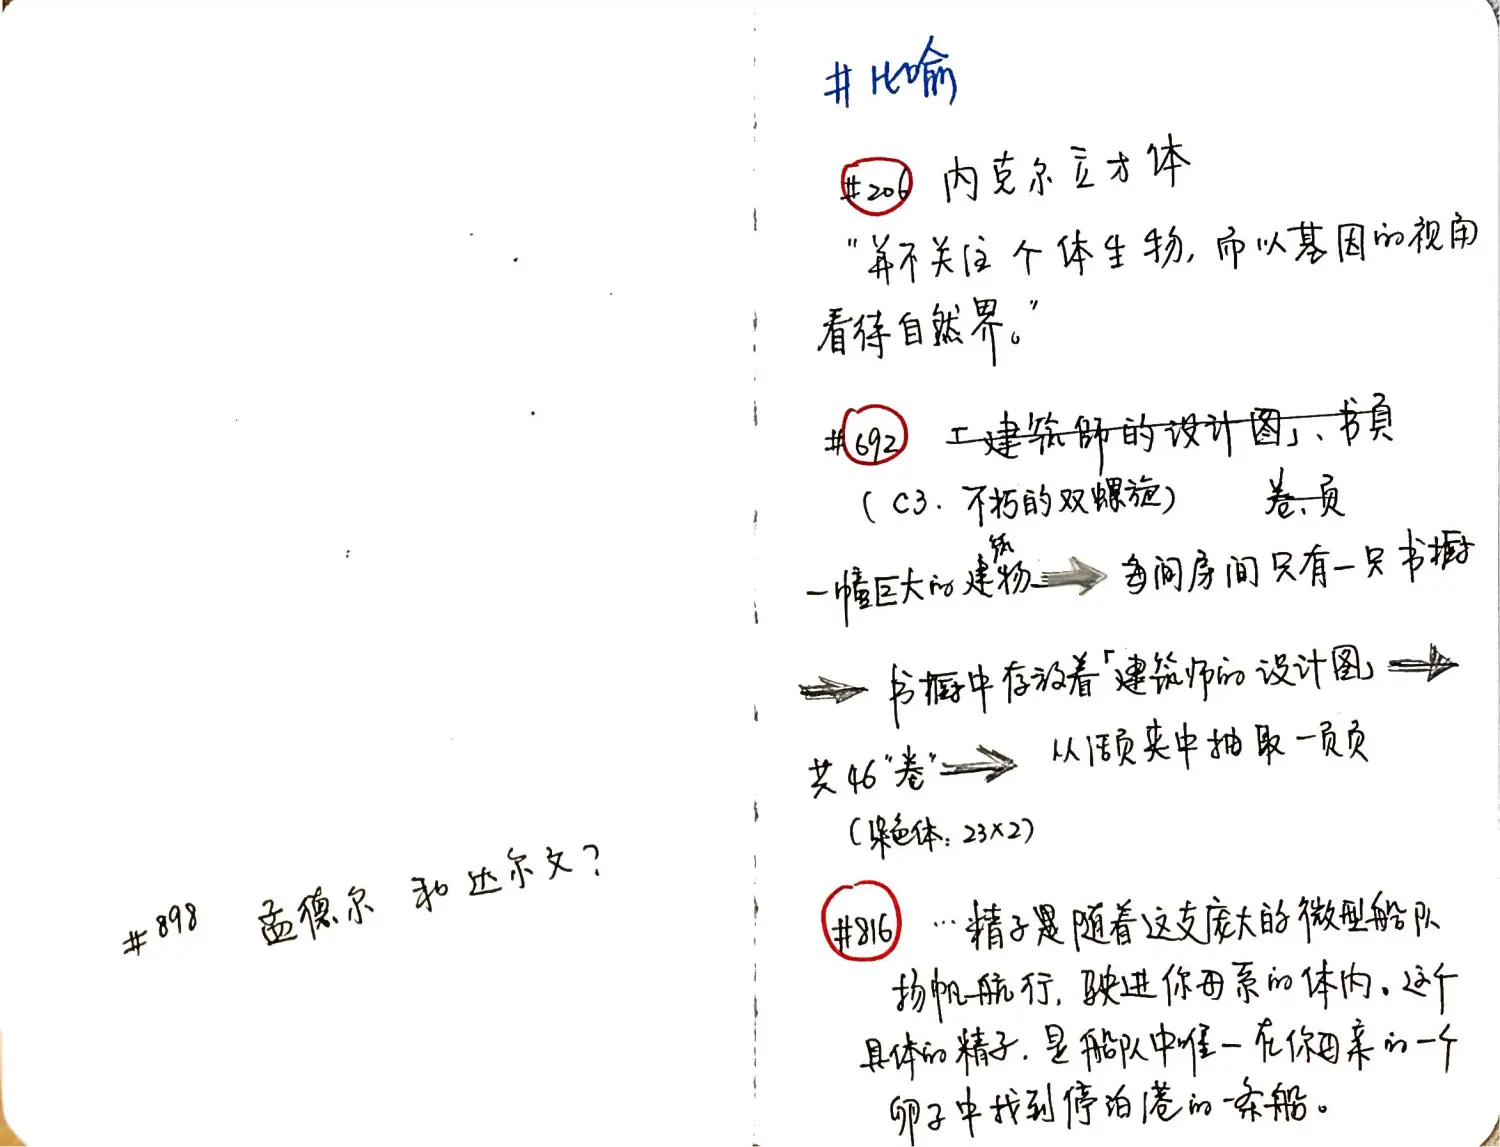 #898 孟德尔和达尔文?
#比喻
#206 内克尔立方体
"并不关注个体生物,而以基因的视角
看待自然界。"
#692 「建筑师的设计图」、书页
(C3. 不朽的双螺旋) 卷、页
一幢巨大的建筑物→每间房间只有一只书橱
→书橱中存放着「建筑师的设计图」→
共46"卷"→从活页夹中抽取一页页
(染色体: 23×2)
#816 …精子是随着这支庞大的微型船队
扬帆航行,驶进你母亲的体内。这个
具体的精子,是船队中唯一在你母亲的一个
卵子中找到停泊港的一条船。